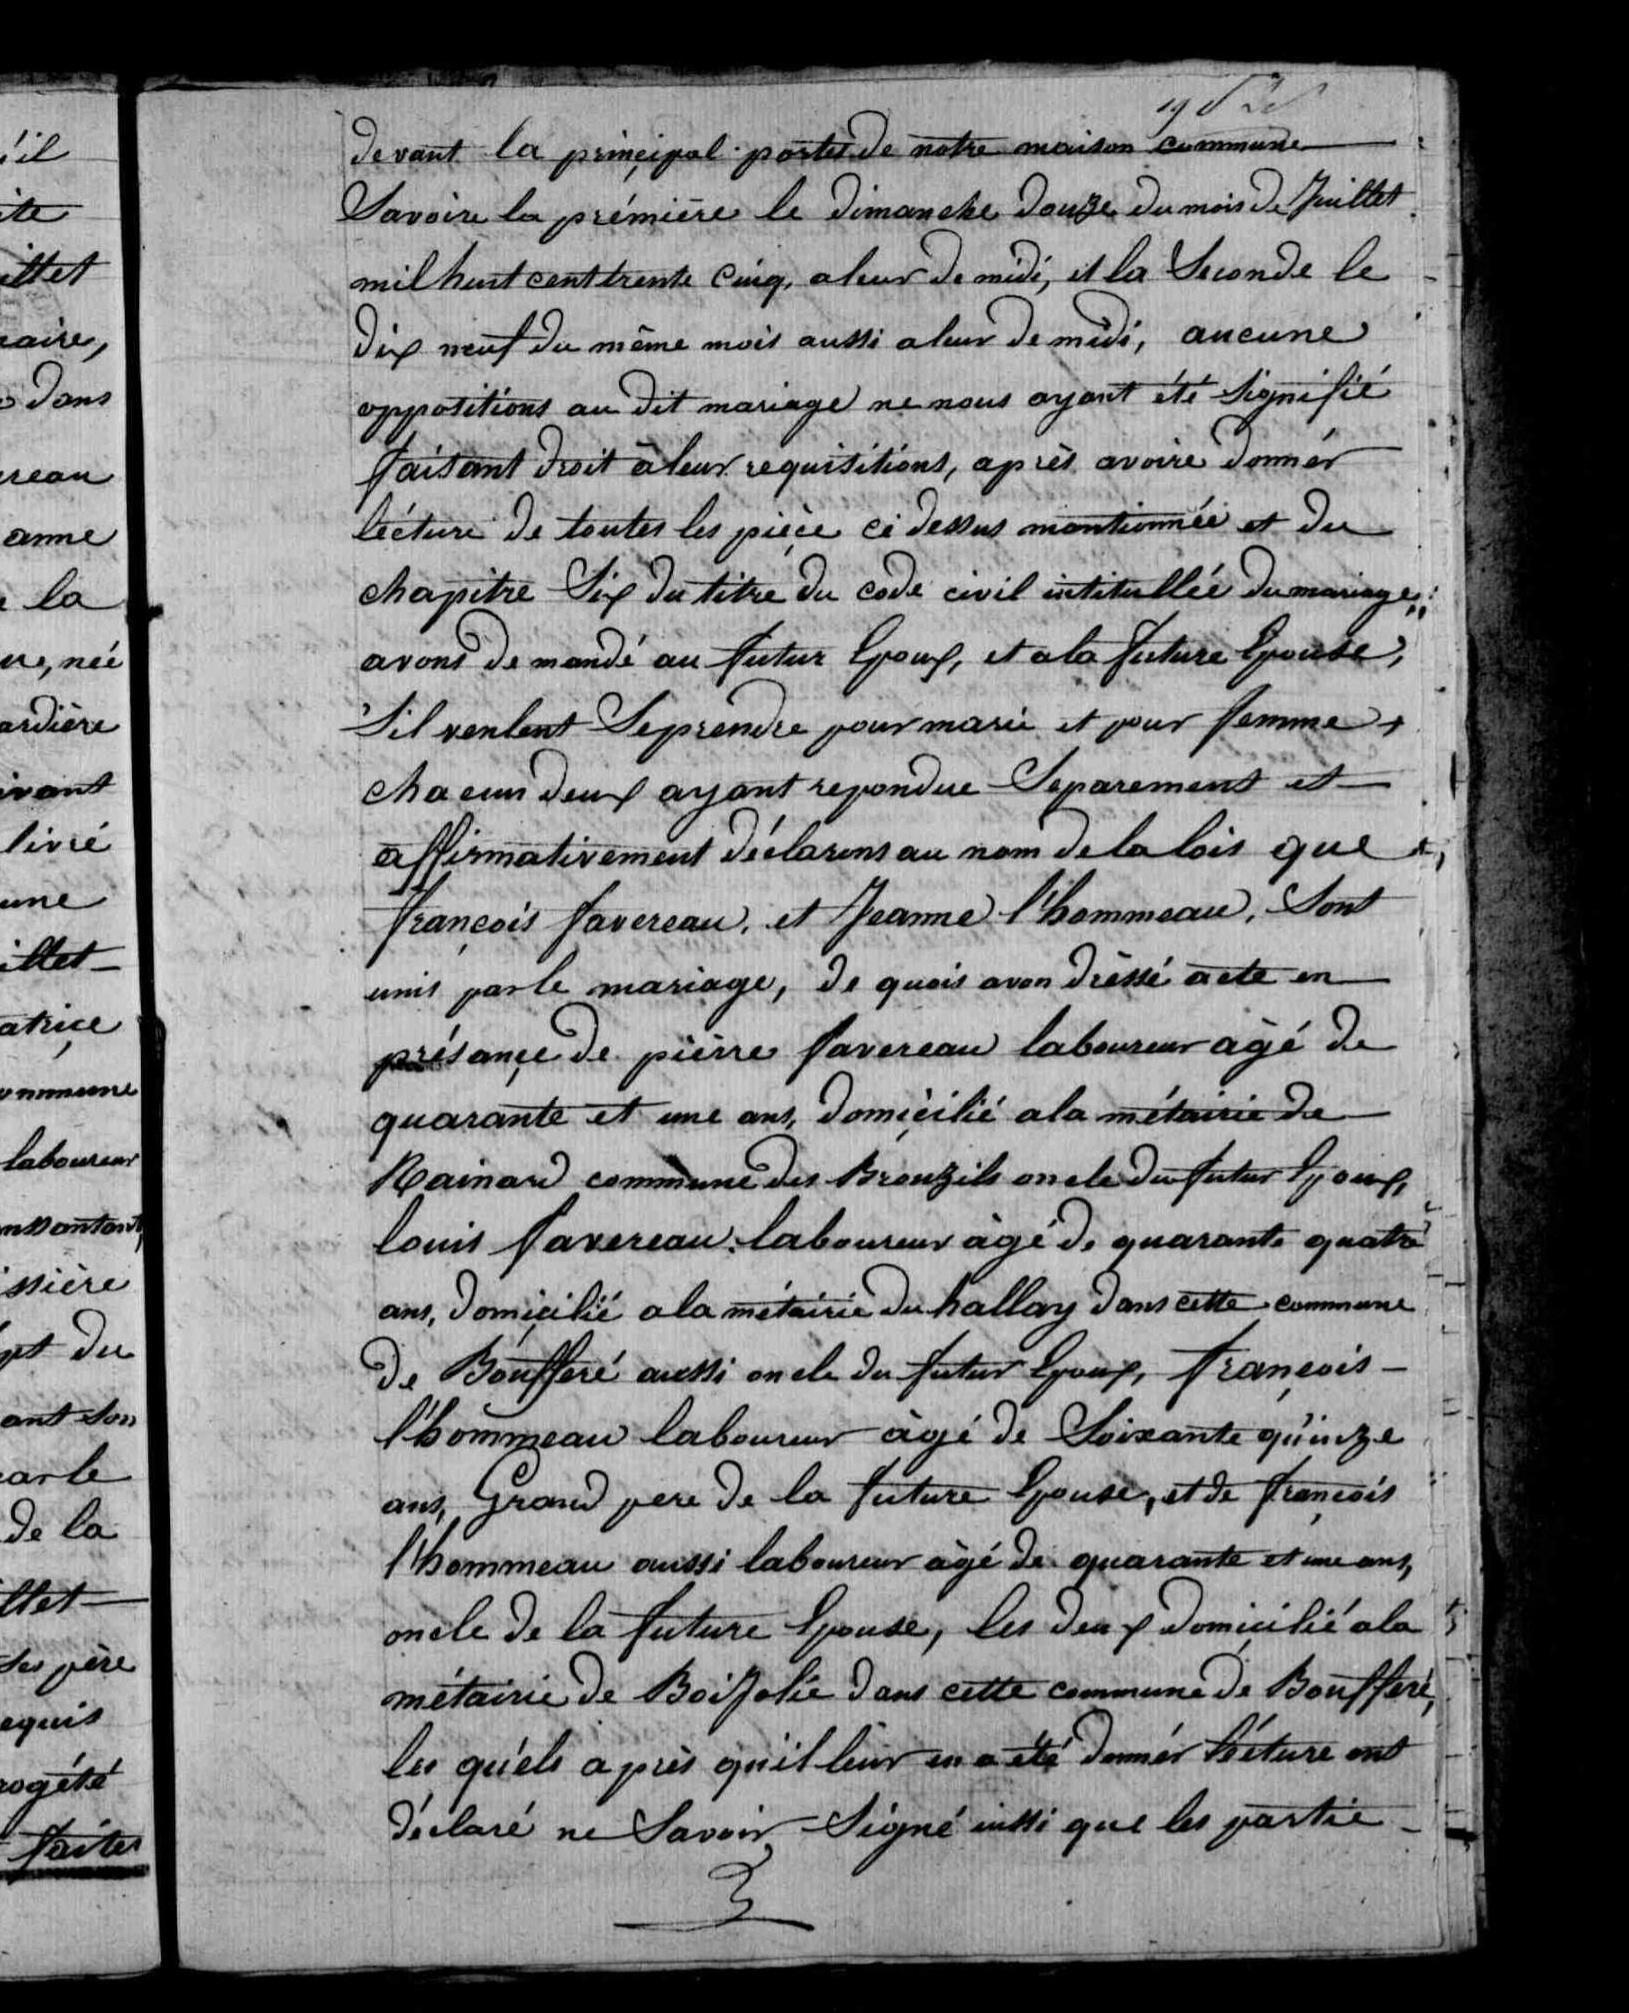 devant la principal porte de notre maison commune
Savoire la prémière le dimanche douze du mois de Juillet
mil huit cent trente cinq, a leur de midi, et la Seconde le
dix neuf du même mois aussi a leur de midi, aucune
oppositions au dit mariage ne nous ayant été Signifié
faisant droit à leur requisitions, après avoire donnér
lécture de toutes les pièce ci dessus mantionnéé et du
chapitre Six du titre du code civil intitulléé du mariage,
avons de mandé au futur Epoux, et a la future Epouse,
S'il veulent Se prendre pour marié et pour femme
chacun deux ayant repondue Separement et
affirmativement déclarons au nom de la lois que
françois favereau, et Jeanne l'hommeau, Sont
unis par le mariage, de quois avon dréssé acte en
présançe de pièrre favereau laboureur àgé de
quarante et une ans, domicilié a la métairie de
Rainard commune des Brouzils oncle du futur Epoux,
louis favereau laboureur àgé de quarante quatre
ans, domicilié a la métairie du hallay dans cette commune
de Boufferé aussi oncle du futur Epoux, françois
l'hommeau laboureur àgé de Soixante quinze
ans, Grand pere de la future Epouse, et de françois
l'hommeau aussi laboureur àgé de quarante et une ans,
oncle de la future Epouse, les deux domicilié a la
métairie de BoisJolie dans cette commune de Boufferé,
les quéls après qu'il leur en a été donnér lécture ont
déclaré ne Savoir Signé inssi que les partie